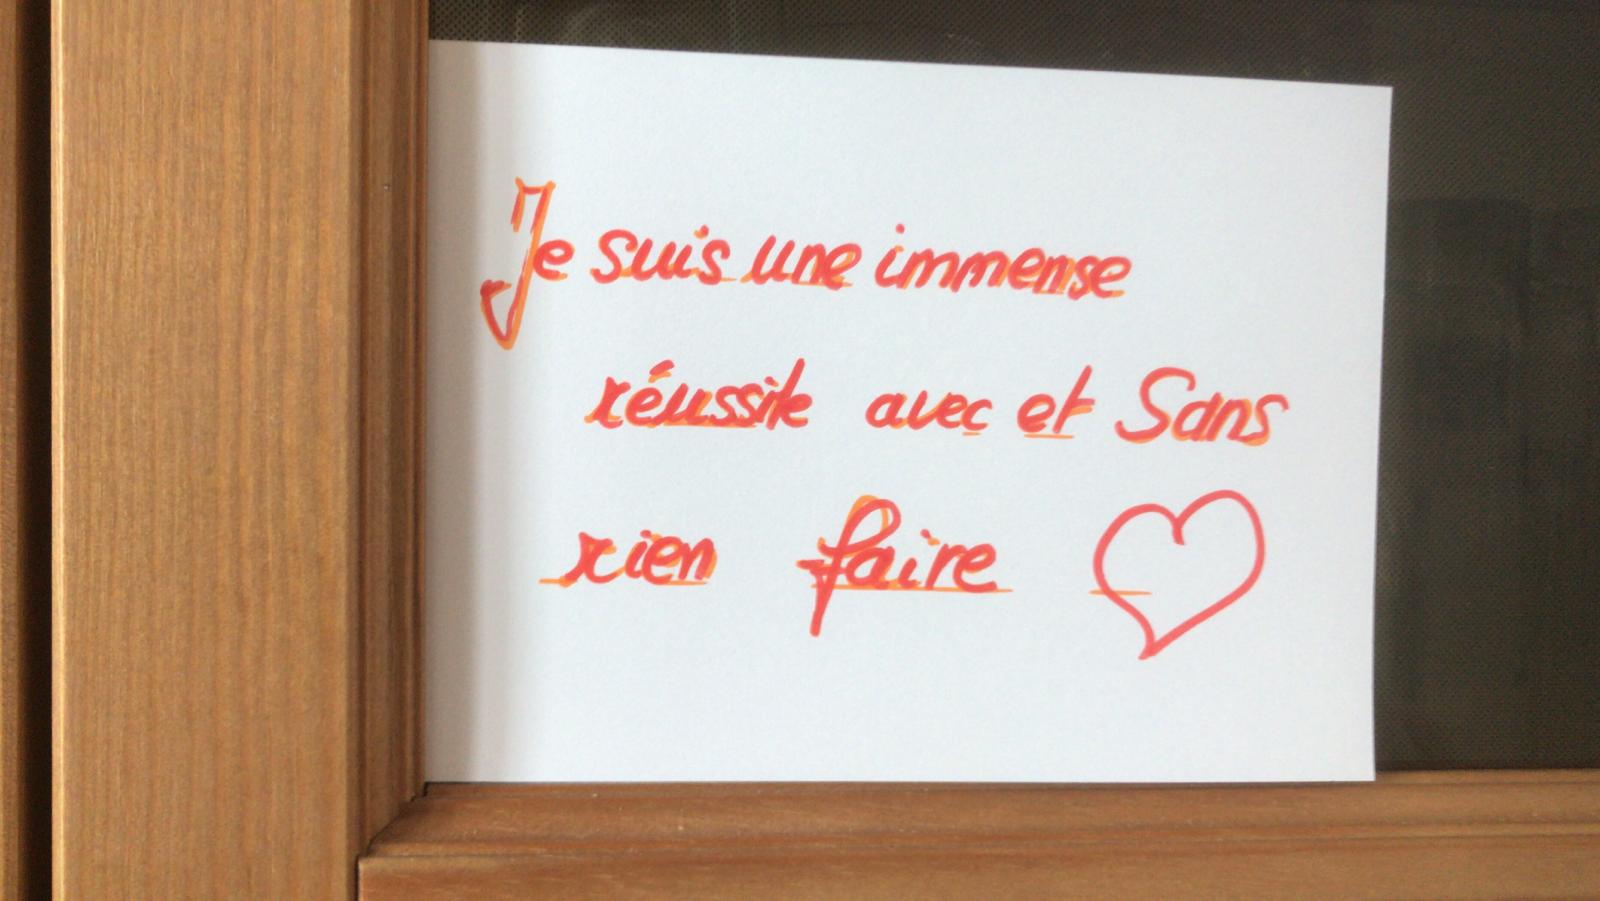 Je suis une immense
réussite avec et Sans
rien faire